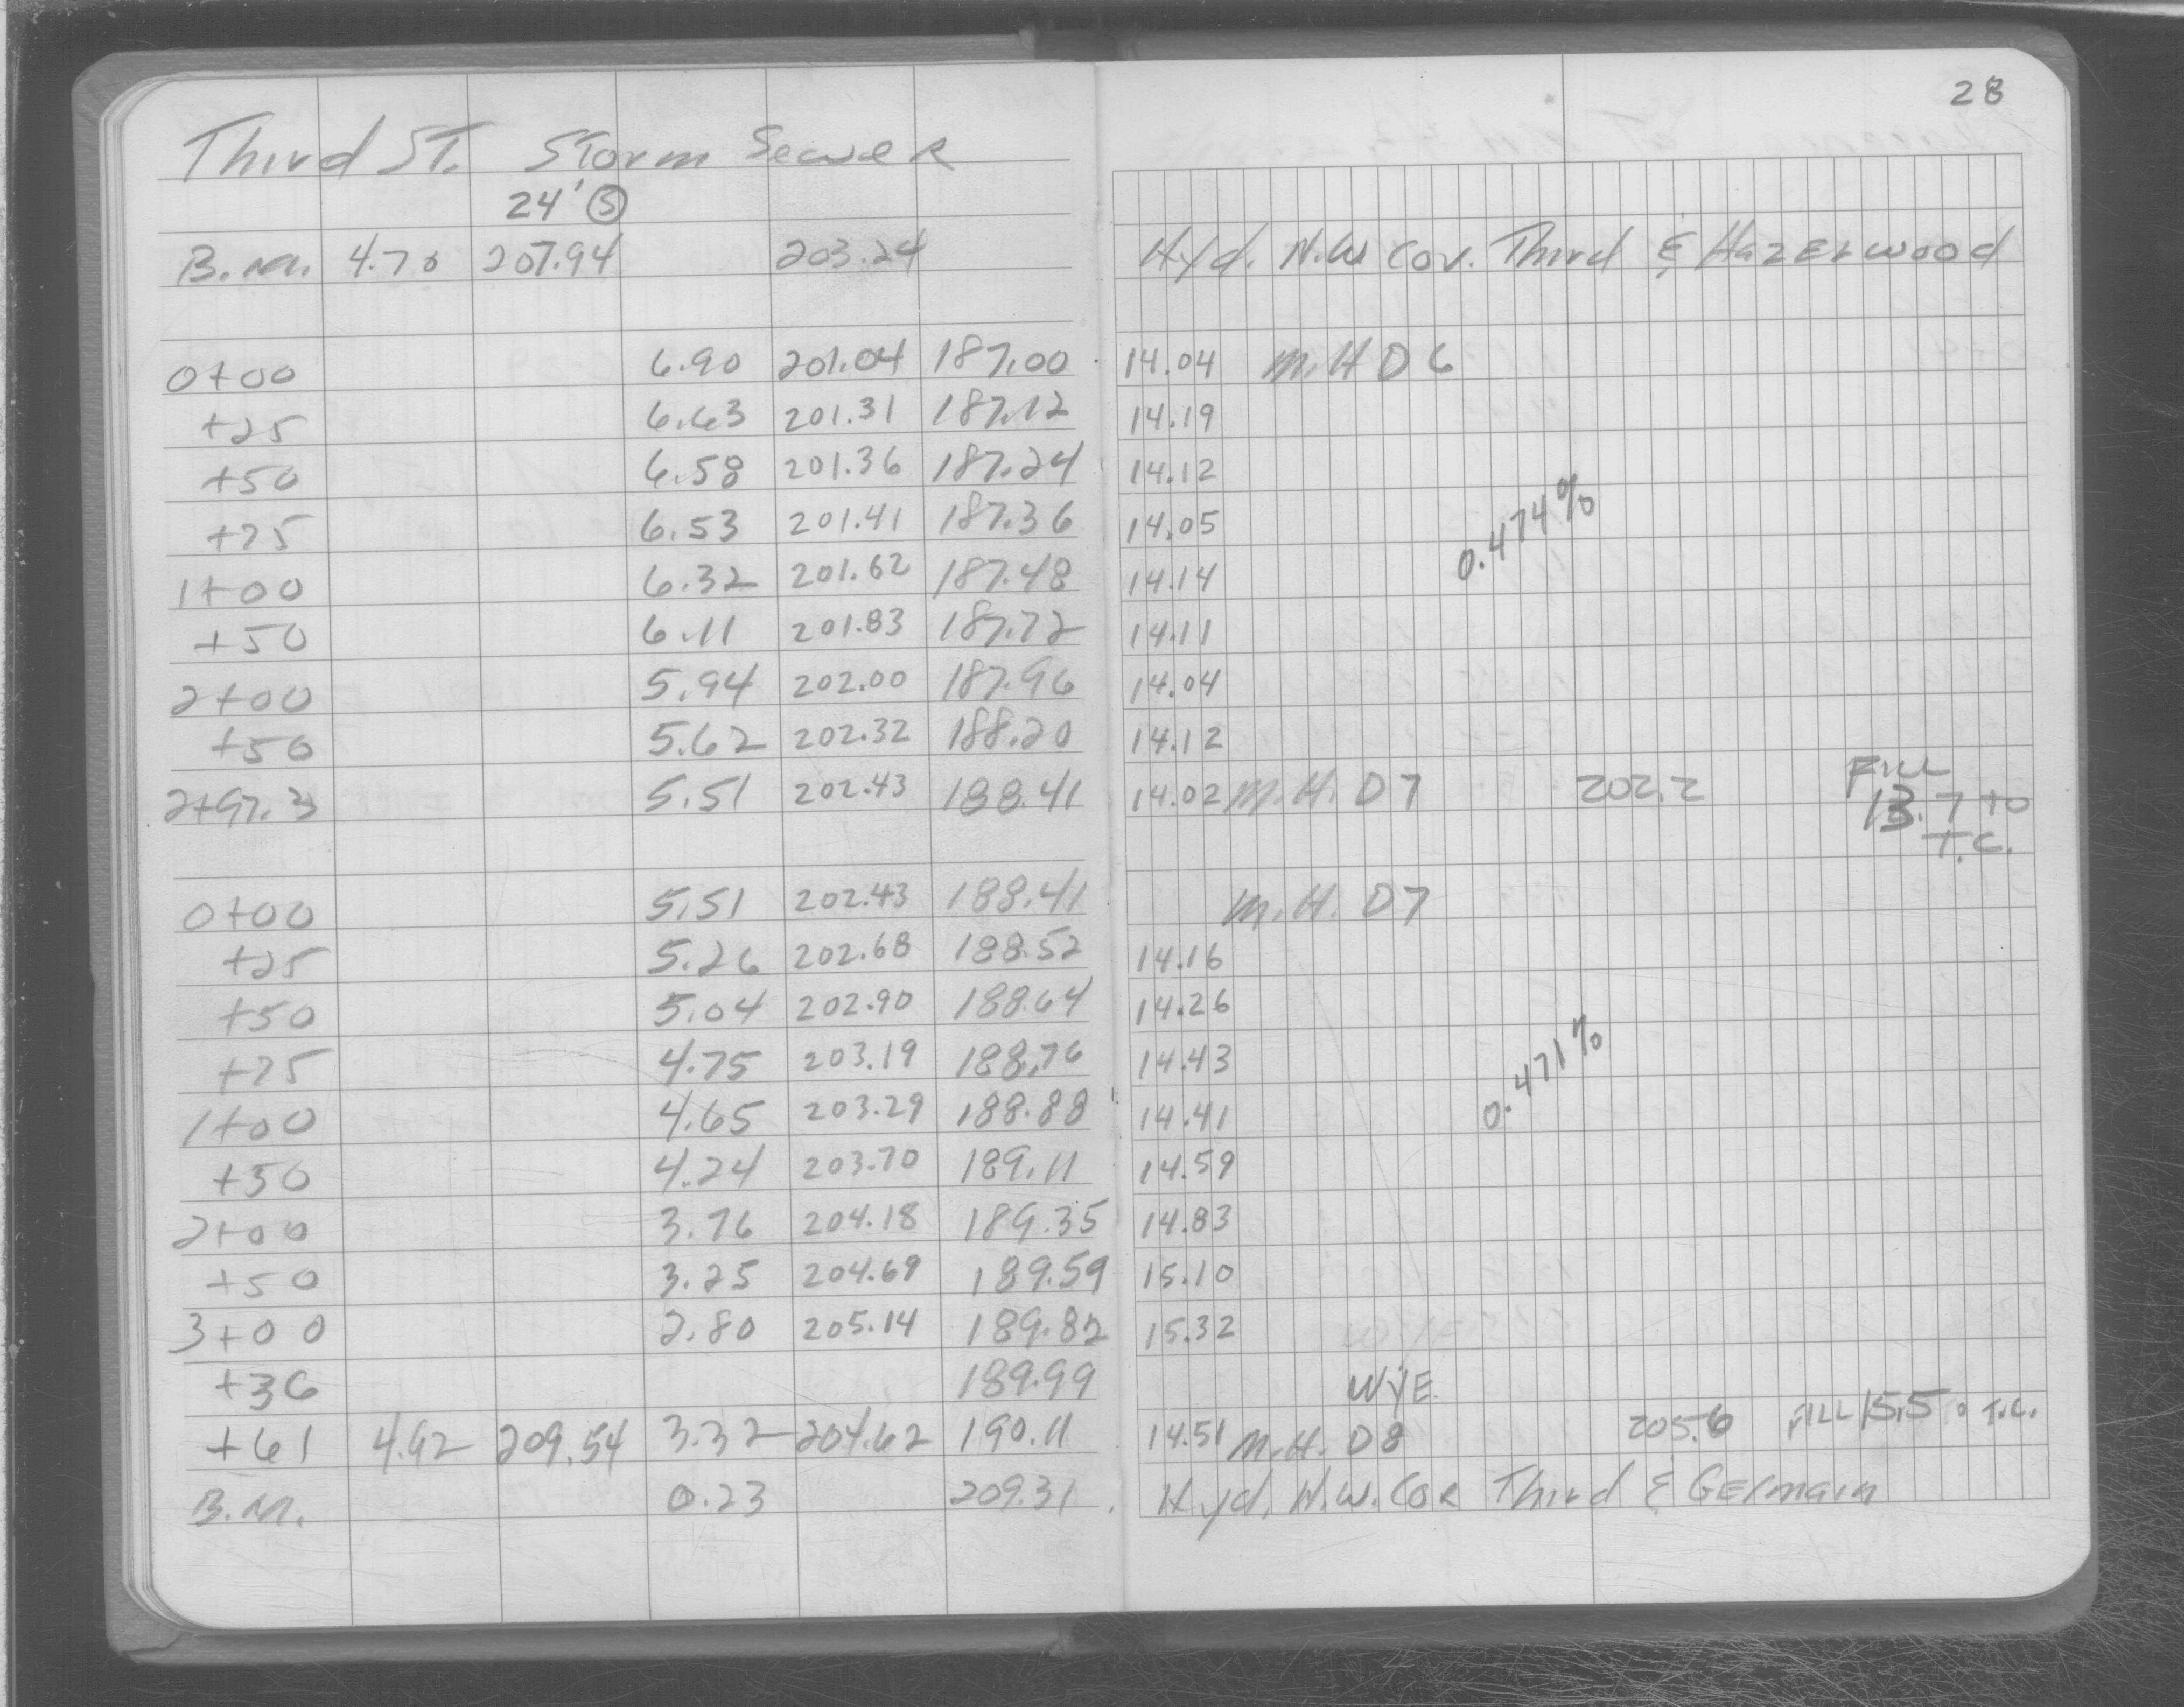 28
Third ST. Storm Sewer
24' Ⓢ
B.M. 4.70 207.94 203.24 Hyd. N.W. Cor. Third & Hazelwood
0+00 6.90 201.04 187.00 14.04 M.H D6
+25 6.63 201.31 187.12 14.19
+50 6.58 201.36 187.24 14.12
+75 6.53 201.41 187.36 14.05
0.474%
1+00 6.32 201.62 187.48 14.14
+50 6.11 201.83 187.72 14.11
2+00 5.94 202.00 187.96 14.04
+50 5.62 202.32 188.20 14.12
2+97.3 5.51 202.43 188.41 14.02 M.H. D7 202.2 FILL 13.7 to T.C.
0+00 5.51 202.43 188.41 M.H. D7
+25 5.26 202.68 188.52 14.16
+50 5.04 202.90 188.64 14.26
+75 4.75 203.19 188.76 14.43
0.471%
1+00 4.65 203.29 188.88 14.41
+50 4.24 203.70 189.11 14.59
2+00 3.76 204.18 189.35 14.83
+50 3.25 204.69 189.59 15.10
3+00 2.80 205.14 189.82 15.32
+36 189.99 WYE
+61 4.92 209.54 3.32 204.62 190.11 14.51 M.H. D8 205.6 FILL 15.5 o T.C.
B.M. 0.23 209.31 Hyd. N.W. Cor Third & Germain